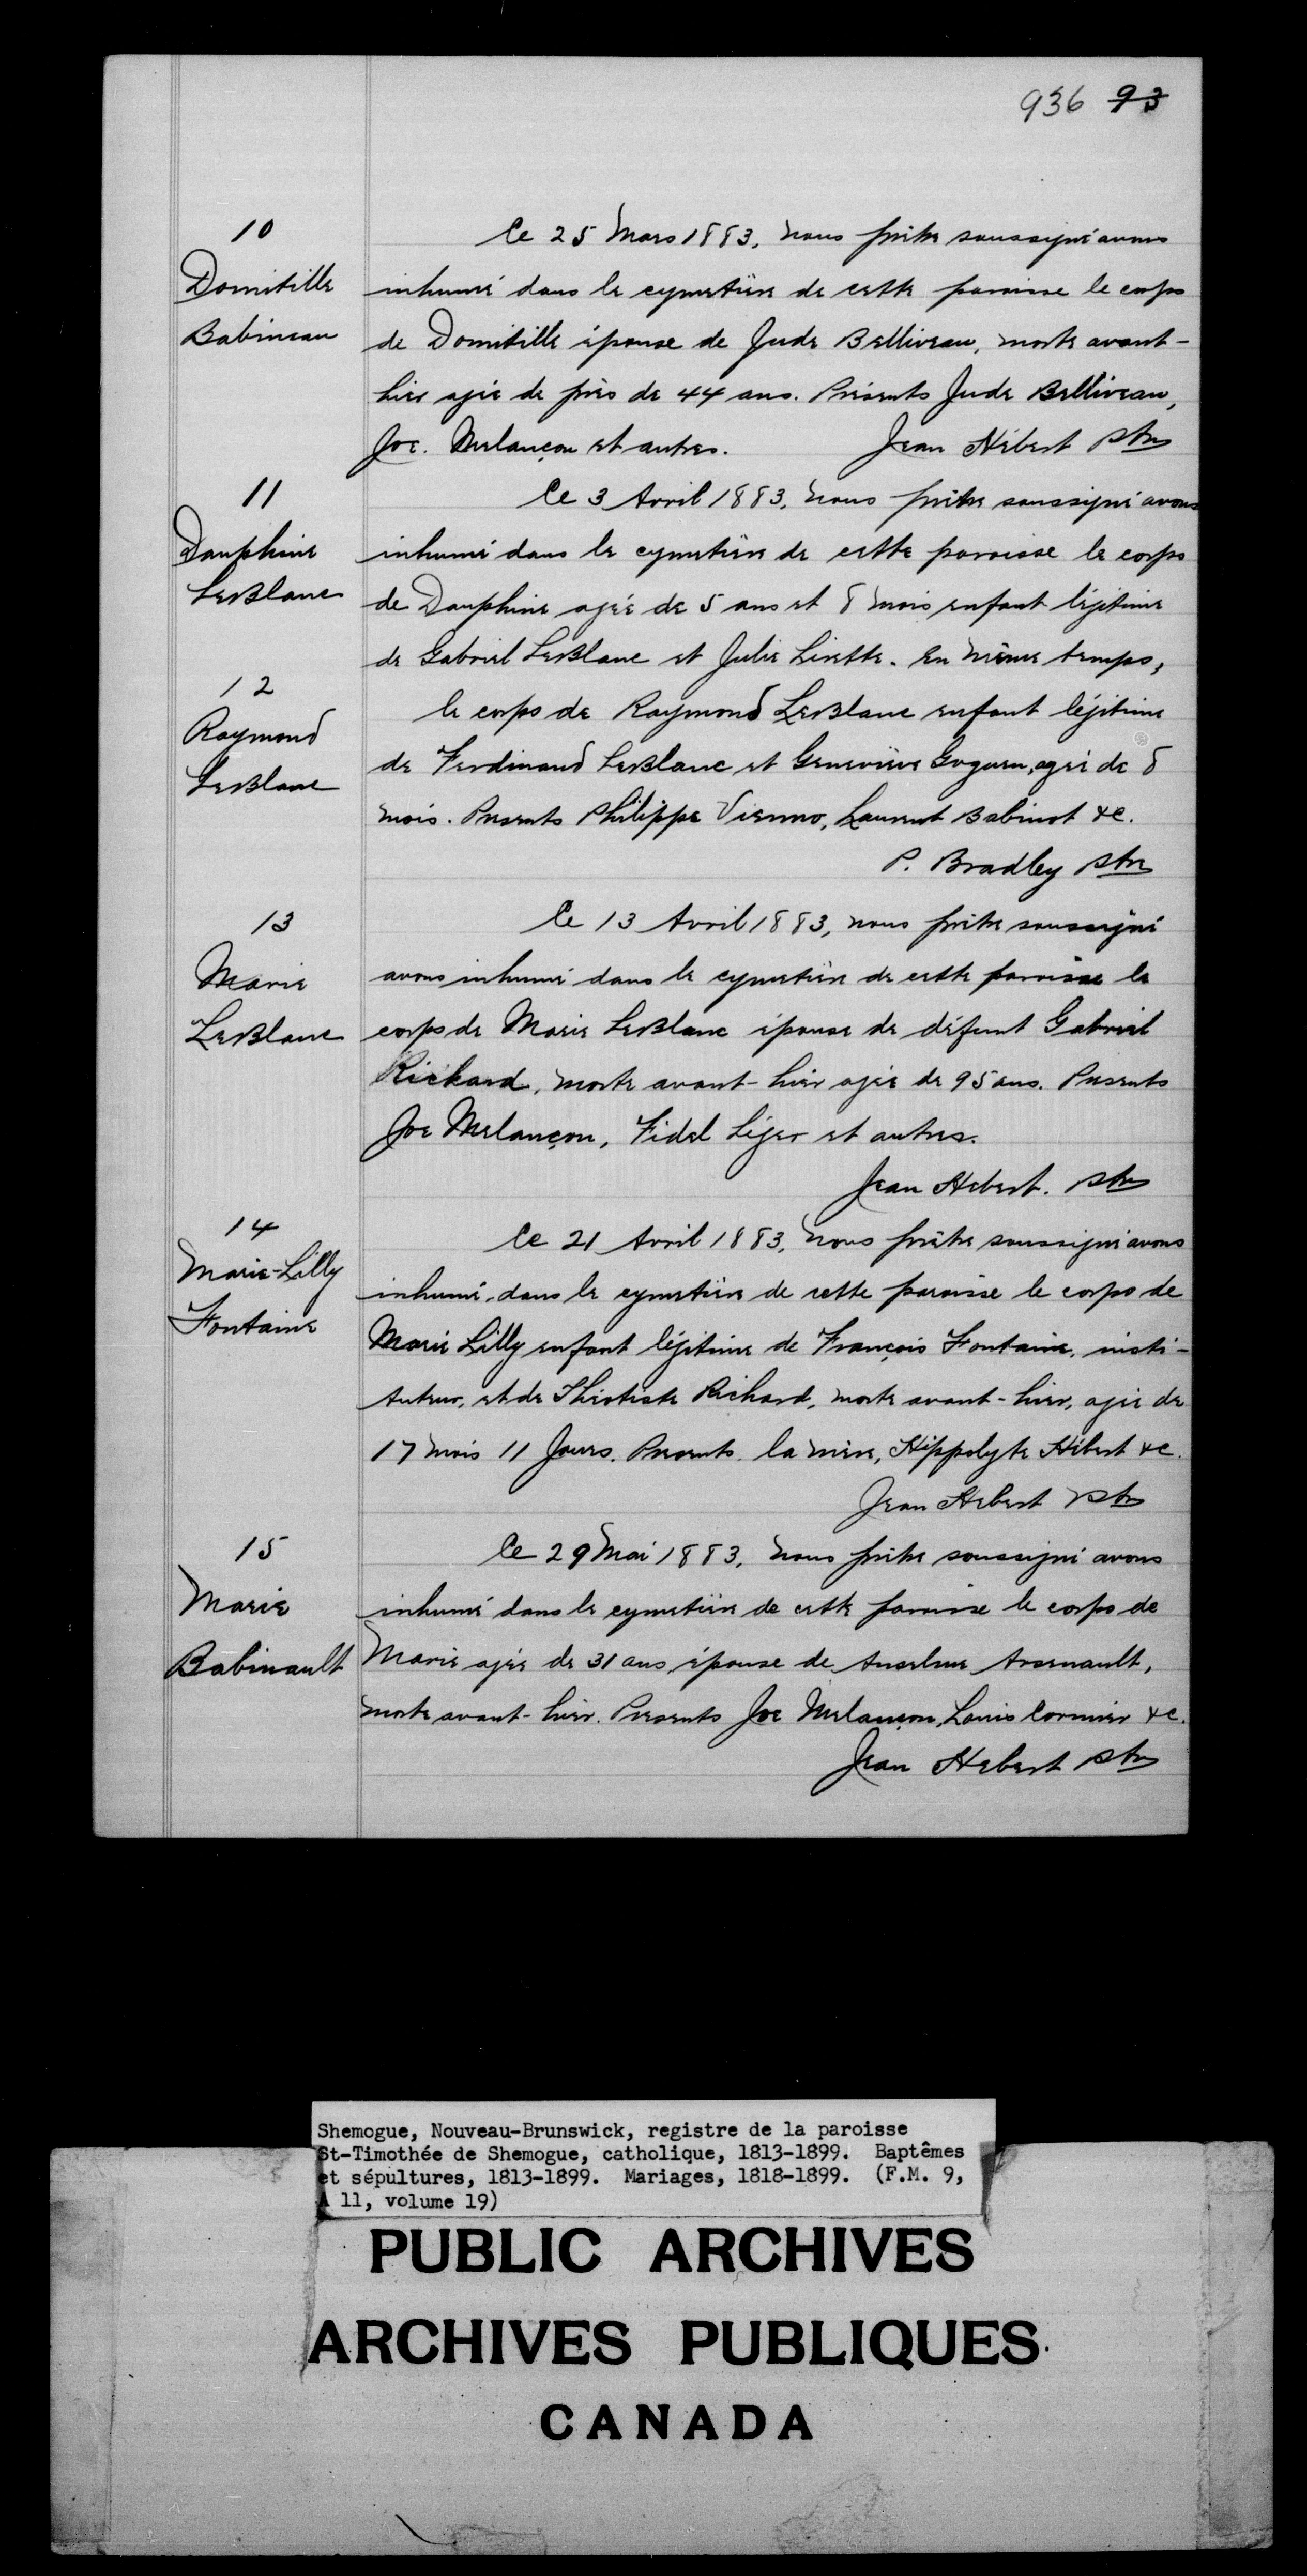 936 93
10
Domitille
Babineau
Ce 25 Mars 1883, nous prêtre soussigné avons
inhumé dans le cymetière de cette paroisse le corps
de Domitille épouse de Jude Belliveau, morte avant-
hier agée de près de 44 ans. Présents Jude Belliveau,
Joe. Melançon et autres. Jean Hébert Ptre
11
Dauphine
LeBlanc
Ce 3 Avril 1883, nous prêtre soussigné avons
inhumé dans le cymetière de cette paroisse le corps
de Dauphine agée de 5 ans et 8 mois enfant légitime
de Gabriel LeBlanc et Julie Lirette. En même temps,
12
Raymond
LeBlanc
le corps de Raymond LeBlanc enfant légitime
de Ferdinand LeBlanc et Geneviève Goguen, agé de 8
mois. Présents Philippe Vienno, Laurent Babinot &c.
P. Bradley Ptre
13
Marie
LeBlanc
Ce 13 Avril 1883, nous prêtre soussigné
avons inhumé dans le cymetière de cette paroisse le
corps de Marie LeBlanc épouse de défunt Gabriel
Richard, morte avant-hier agée de 95 ans. Présents
Joe Melançon, Fidel Léger et autres.
Jean Hebert. Ptre
14
Marie-Lilly
Fontaine
Ce 21 Avril 1883, nous prêtre soussigné avons
inhumé, dans le cymetière de cette paroisse le corps de
Marie Lilly enfant légitime de François Fontaine, insti-
tuteur, et de Théotiste Richard, morte avant-hier, agée de
17 mois 11 Jours. Présents la mère, Hippolyte Hébert &c.
Jean Hebert Ptre
15
Marie
Babinault
Ce 29 Mai 1883, nous prêtre soussigné avons
inhumé dans le cymetière de cette paroisse le corps de
Marie agée de 31 ans, épouse de Anselme Arsenault,
morte avant-hier. Présents Joe Melançon, Louis Cormier &c.
Jean Hebert Ptre
Shemogue, Nouveau-Brunswick, registre de la paroisse
St-Timothée de Shemogue, catholique, 1813-1899. Baptêmes
et sépultures, 1813-1899. Mariages, 1818-1899. (F.M. 9,
A 11, volume 19)
PUBLIC ARCHIVES
ARCHIVES PUBLIQUES
CANADA